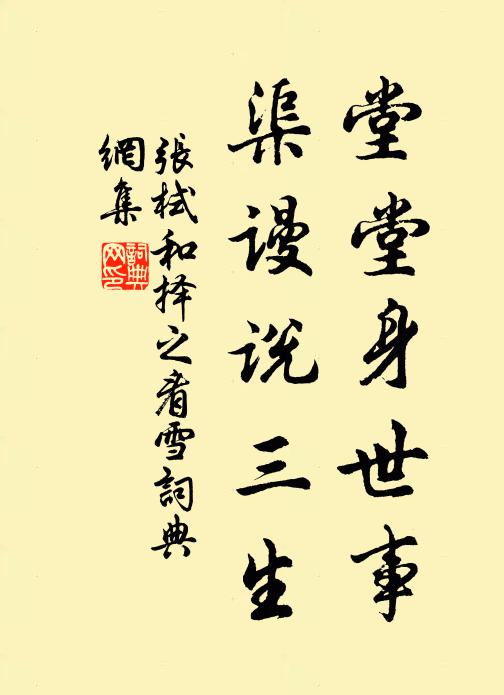 堂堂身世事
渠谩说三生
張栻和择之看雪詞典
網集
詞典
网印